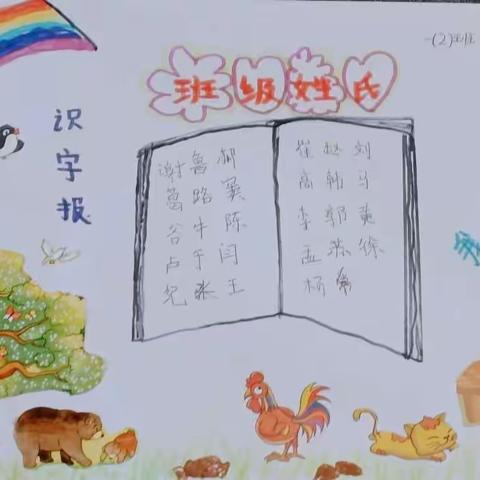 一(2)班
班级姓氏
识字报
谢 鲁 郝
葛 路 窦
谷 牛 陈
卢 于 闫
兒 张 王
崔 赵 刘
高 韩 马
李 郭 黄
孟 苏 徐
杨